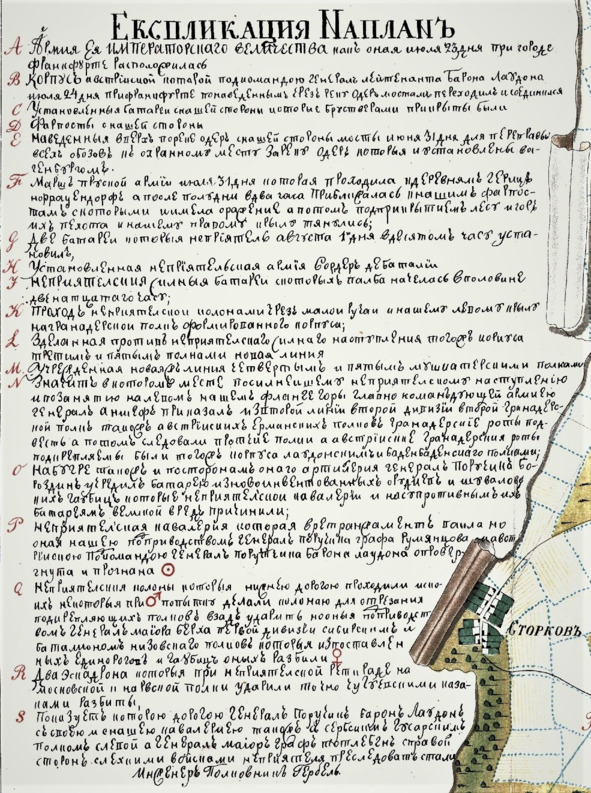 Експликация Напланъ
A Армия Ея ИМПЕРАТОРСКАГО ВЕЛИЧЕСТВА какъ оная июля 23 дня при городе
франкфурте расположилась
B Корпусъ австрискои которои подкомандою генералъ леитенанта барона лаудона
июля 24 дня прифранкфурте понаведеннымъ чрезъ реку одеръ мостамъ переходилъ исоединился
C Установленныя батареи снашеи стороны которые брустверами прикрыты были
D Фарпосты снашеи стороны
E Наведенныя вверхъ пореке одеръ снашеи стороны мосты июня 31 дня для переправы
всехъ обозовъ по охранному месту Зареку одеръ которыя иустановлены ва-
генбургомъ.
F Маршъ прускои армии июля 31 дня которая проходила кдеревнямъ герицъ
апосле полудни вдва часа приближалась кнашимъ фарпос-
тамъ скоторыми имела сражение апотомъ подприкрытиемъ лесу игоръ
ихъ пехота кнашему правому крылу тянулись;
G Две батареи которыя неприятель августа 1 дня вдесятомъ часу уста-
новилъ,
H Установленная неприятельская армия вордеръ дебаталии
I Неприятелския силныя батареи скоторыхъ палба началась вполовине
двенатцатаго часу;
K Проходъ неприятелскои колонами чрезъ малои ручеи кнашему левому крылу
награнадерскои полкъ формированного корпуса;
L Зделанная противъ неприятелскаго силнаго наступления тогожъ корпуса
третимъ и пятымъ полками новая линия
M Учрежденная новаяжъ линия четвертымъ и пятымъ мушкатерскими полками
N Значитъ вкоторомъ месте посилнеишему неприятелскому наступлению
ипозанятию налевомъ нашемъ фланге горы главно командующеи армиею
генералъ аншефъ приказалъ изъвторои линии второи дивизии второи гранадер-
скои полкъ такожъ австрискихъ Ерманскихъ полковъ гранадерские роты под-
весть а потомъ следовали протчие полки а австриские гранадерския роты
подкрепляемы были тогожъ корпуса лаудонскимъ ибаденбаденскаго полками;
O Набугре такожъ и посторонамъ онаго артилерия генералъ Порутчикъ Бо-
роздинъ учредилъ батарею изновоинвентованныхъ орудиевъ и шувалов-
скихъ гаубицъ которые неприятелскои кавалерии и насупротивнымъ ихъ
батареямъ великои вредъ причинили;
P Неприятелская кавалерия которая вретраншаментъ впала но
оная нашею поприводствомъ генералъ порутчика графа Румянцова иавст-
рискою покомандою генералъ порутчика барона лаудона опровер-
гнута и прогнана ☉
Q Неприятелския колоны которыя нижнею дорогою проходили иско-
ихъ некоторыя при ♂ попытку делали полонаю для отрезания
подкрепляющихъ полковъ взадъ ударить нооныя поприводст-
вомъ генералъ маиора берха первои дивизии сибирскимъ и
баталиономъ низовскаго полковъ которыя ипоставлен-
ныхъ единороговъ и гаубицъ оныхъ разбили ♀
R Два эскадрона которыя при неприятелскои ретираде на
московскои и нарвскои полки ударили точно чугуевскими каза-
ками разбиты,
S Показуетъ которою дорогою генералъ Порутчикъ баронъ Лаудонъ
съсвоею инашею кавалериею такожъ и сербскимъ гусарскимъ
полкомъ слевои а генералъ маиоръ графъ тотлебенъ справои
сторонъ слехкими воисками неприятеля преследовать стали
Инженеръ Полковникъ Гербель
Сторковъ